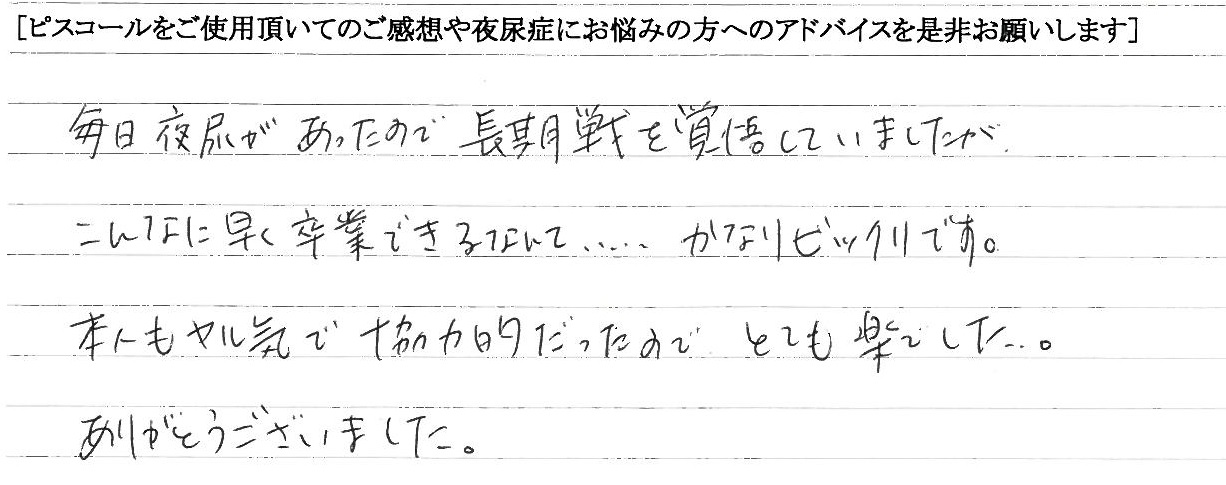 [ピスコールをご使用頂いてのご感想や夜尿症にお悩みの方へのアドバイスを是非お願いします]
毎日夜尿があったので長期戦を覚悟していましたが、
こんなに早く卒業できるなんて…… かなりビックリです。
本人もヤル気で協力的だったので とても楽でした…。
ありがとうございました。